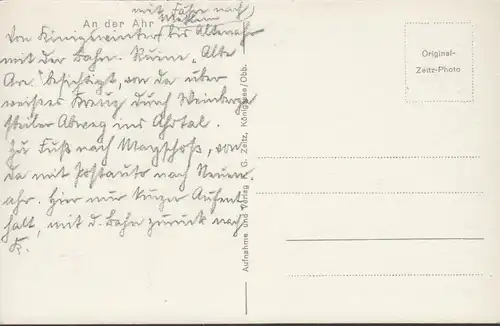 An der Ahr
mit Fähre nach
Mehlem
Von Königswinter bis Altenahr
mit der Bahn. Ruine „Alte
Are" besichtigt, von da über
weisses Kreuz durch Weinberge
steiler Abweg ins Ahrtal.
Zu Fuß nach Mayschoß, von
da mit Postauto nach Neuen-
ahr. Hier nur kurzer Aufent
halt, mit d. Bahn zurück nach
K.
Aufnahme und Verlag G. Zeitz, Königssee/Obb.
Original-
Zeitz-Photo